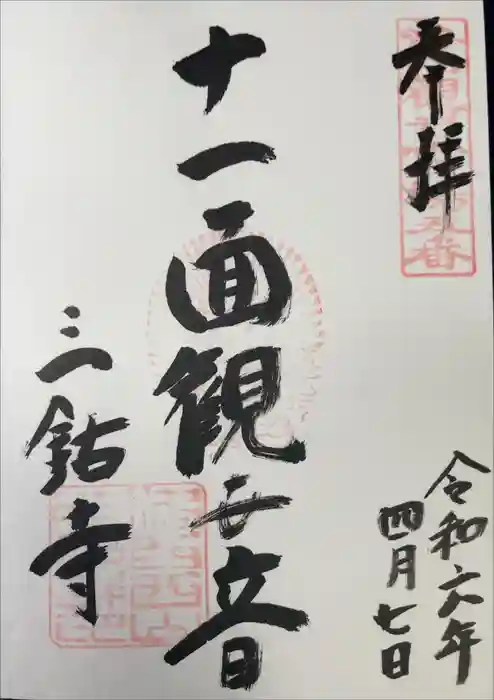 奉拝
十一面観世音
三鈷寺
令和六年
四月七日